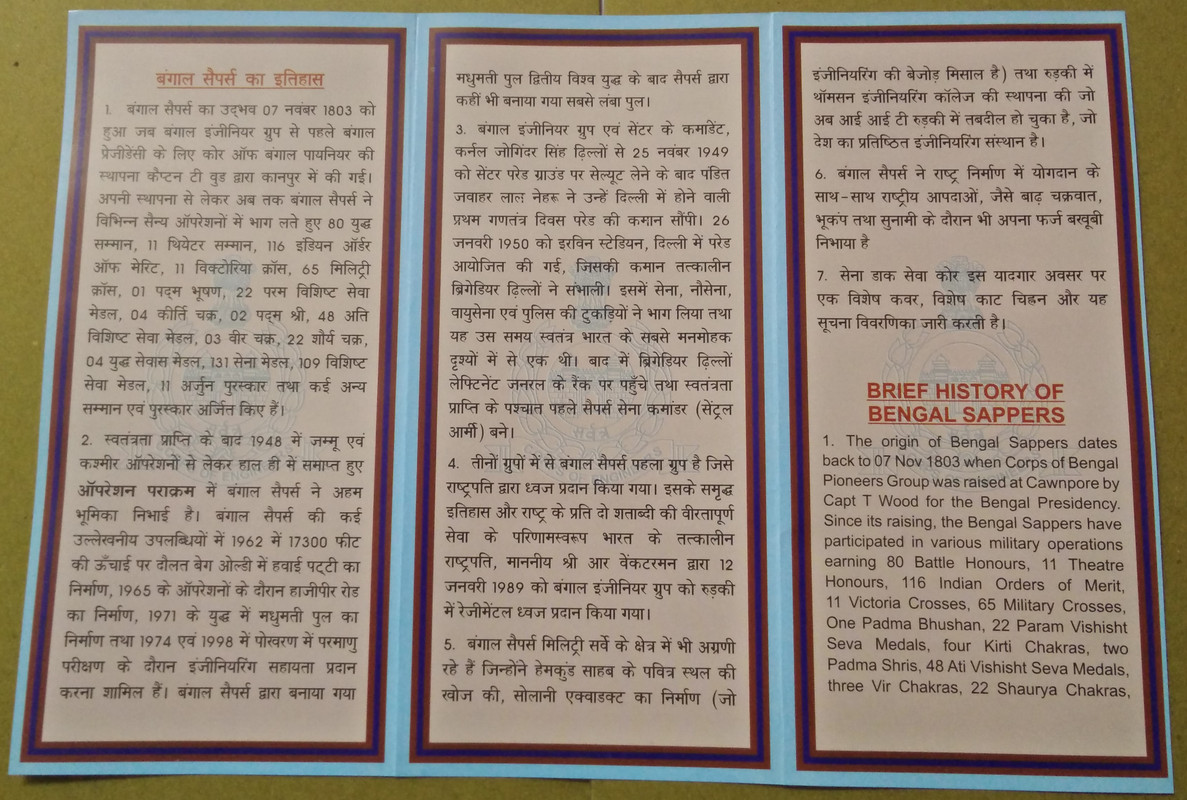 बंगाल सैपर्स का इतिहास
1. बंगाल सैपर्स का उद्भव 07 नवंबर 1803 को
हुआ जब बंगाल इंजीनियर ग्रुप से पहले बंगाल
प्रेजीडेंसी के लिए कोर ऑफ बंगाल पायनियर की
स्थापना कैप्टन टी वुड द्वारा कानपुर में की गई।
अपनी स्थापना से लेकर अब तक बंगाल सैपर्स ने
विभिन्न सैन्य ऑपरेशनों में भाग लते हुए 80 युद्ध
सम्मान, 11 थियेटर सम्मान, 116 इंडियन ऑर्डर
ऑफ मेरिट, 11 विक्टोरिया क्रॉस, 65 मिलिट्री
क्रॉस, 01 पद्म भूषण, 22 परम विशिष्ट सेवा
मेडल, 04 कीर्ति चक्र, 02 पद्म श्री, 48 अति
विशिष्ट सेवा मेडल, 03 वीर चक्र, 22 शौर्य चक्र,
04 युद्ध सेवास मेडल, 131 सेना मेडल, 109 विशिष्ट
सेवा मेडल, 11 अर्जुन पुरस्कार तथा कई अन्य
सम्मान एवं पुरस्कार अर्जित किए हैं।
2. स्वतंत्रता प्राप्ति के बाद 1948 में जम्मू एवं
कश्मीर ऑपरेशनों से लेकर हाल ही में समाप्त हुए
ऑपरेशन पराक्रम में बंगाल सैपर्स ने अहम
भूमिका निभाई है। बंगाल सैपर्स की कई
उल्लेखनीय उपलब्धियों में 1962 में 17300 फीट
की ऊँचाई पर दौलत बेग ओल्डी में हवाई पट्टी का
निर्माण, 1965 के ऑपरेशनों के दौरान हाजीपीर रोड
का निर्माण, 1971 के युद्ध में मधुमती पुल का
निर्माण तथा 1974 एवं 1998 में पोखरण में परमाणु
परीक्षण के दौरान इंजीनियरिंग सहायता प्रदान
करना शामिल हैं। बंगाल सैपर्स द्वारा बनाया गया
मधुमती पुल द्वितीय विश्व युद्ध के बाद सैपर्स द्वारा
कहीं भी बनाया गया सबसे लंबा पुल।
3. बंगाल इंजीनियर ग्रुप एवं सेंटर के कमांडेंट,
कर्नल जोगिंदर सिंह ढ़िल्लों से 25 नवंबर 1949
को सेंटर परेड ग्राउंड पर सेल्यूट लेने के बाद पंडित
जवाहर लाल नेहरू ने उन्हें दिल्ली में होने वाली
प्रथम गणतंत्र दिवस परेड की कमान सौंपी। 26
जनवरी 1950 को इरविन स्टेडियन, दिल्ली में परेड
आयोजित की गई, जिसकी कमान तत्कालीन
ब्रिगेडियर ढ़िल्लों ने संभाली। इसमें सेना, नौसेना,
वायुसेना एवं पुलिस की टुकड़ियों ने भाग लिया तथा
यह उस समय स्वतंत्र भारत के सबसे मनमोहक
दृश्यों में से एक थी। बाद में ब्रिगेडियर ढ़िल्लों
लेफ्टिनेंट जनरल के रैंक पर पहुँचे तथा स्वतंत्रता
प्राप्ति के पश्चात पहले सैपर्स सेना कमांडर (सेंट्रल
आर्मी) बने।
4. तीनों ग्रुपों में से बंगाल सैपर्स पहला ग्रुप है जिसे
राष्ट्रपति द्वारा ध्वज प्रदान किया गया। इसके समृद्ध
इतिहास और राष्ट्र के प्रति दो शताब्दी की वीरतापूर्ण
सेवा के परिणामस्वरूप भारत के तत्कालीन
राष्ट्रपति, माननीय श्री आर वेंकटरमन द्वारा 12
जनवरी 1989 को बंगाल इंजीनियर ग्रुप को रुड़की
में रेजीमेंटल ध्वज प्रदान किया गया।
5. बंगाल सैपर्स मिलिट्री सर्वे के क्षेत्र में भी अग्रणी
रहे हैं जिन्होंने हेमकुंड साहब के पवित्र स्थल की
खोज की, सोलानी एक्वाडक्ट का निर्माण (जो
इंजीनियरिंग की बेजोड़ मिसाल है) तथा रुड़की में
थॉमसन इंजीनियरिंग कॉलेज की स्थापना की जो
अब आई आई टी रुड़की में तबदील हो चुका है, जो
देश का प्रतिष्ठित इंजीनियरिंग संस्थान है।
6. बंगाल सैपर्स ने राष्ट्र निर्माण में योगदान के
साथ-साथ राष्ट्रीय आपदाओं, जैसे बाढ़ चक्रवात,
भूकंप तथा सुनामी के दौरान भी अपना फर्ज बखूबी
निभाया है
7. सेना डाक सेवा कोर इस यादगार अवसर पर
एक विशेष कवर, विशेष काट चिह्न और यह
सूचना विवरणिका जारी करती है।
BRIEF HISTORY OF
BENGAL SAPPERS
1. The origin of Bengal Sappers dates
back to 07 Nov 1803 when Corps of Bengal
Pioneers Group was raised at Cawnpore by
Capt T Wood for the Bengal Presidency.
Since its raising, the Bengal Sappers have
participated in various military operations
earning 80 Battle Honours, 11 Theatre
Honours, 116 Indian Orders of Merit,
11 Victoria Crosses, 65 Military Crosses,
One Padma Bhushan, 22 Param Vishisht
Seva Medals, four Kirti Chakras, two
Padma Shris, 48 Ati Vishisht Seva Medals,
three Vir Chakras, 22 Shaurya Chakras,